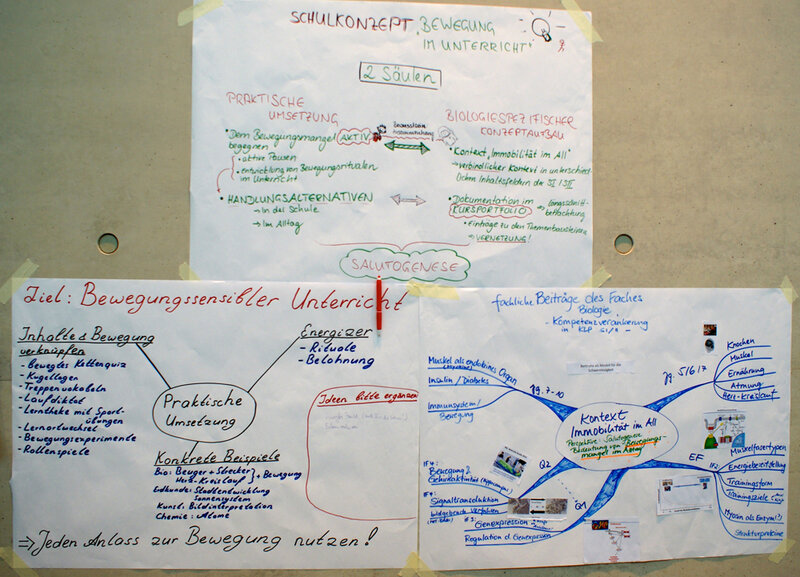 SCHULKONZEPT „BEWEGUNG
IM UNTERRICHT"
2 Säulen
PRAKTISCHE
UMSETZUNG
• Dem Bewegungsmangel AKTIV
begegnen
• aktive Pausen
• Entwicklung von Bewegungsritualen
im Unterricht
• HANDLUNGSALTERNATIVEN
→ In der Schule
→ Im Alltag
BIOLOGIESPEZIFISCHER
KONZEPTAUFBAU
• Kontext „Immobilität im All"
→ verbindlicher Kontext in unterschied
lichen Inhaltsfeldern der SI I SII
• Dokumentation im
KURSPORTFOLIO
→ Längsschnitt-
betrachtung
• Einträge zu den Themenbausteinen
→ VERNETZUNG!
SALUTOGENESE
Ziel: Bewegungssensibler Unterricht
Inhalte & Bewegung
verknüpfen
- Bewegtes Kettenquiz
- Kugellager
- Treppenvokabeln
- Laufdiktat
- Lerntheke mit Sport-
übungen
- Lernortwechsel
- Bewegungsexperimente
- Rollenspiele
Energizer
- Rituale
- Belohnung
Praktische
Umsetzung
Ideen bitte ergänzen
Konkrete Beispiele
Bio: Beuger + Strecker
Herz-Kreislauf } + Bewegung
Erdkunde: Stadtentwicklung
Sonnensystem
Kunst: Bildinterpretation
Chemie: Atome
⇒ Jeden Anlass zur Bewegung nutzen!
fachliche Beiträge des Faches
Biologie
- Kompetenzverankerung
in KLP SI/II -
Muskel als endokrines Organ
Insulin / Diabetes
Immunsystem/
Bewegung
Jg. 7-10
Jg. 5/6/7
Knochen
Muskel
Ernährung
Atmung
Herz-Kreislauf
Kontext
Immobilität im All
Perspektive Salutogenese
Bedeutung von Bewegungs-
mangel im Alltag
EF
Muskelfasertypen
Energiebereitstellung
Trainingsform
Trainingsziele
Myosin als Enzym(!?)
Strukturproteine
Q2
IF4:
Bewegung &
Gehirnaktivität
IF4:
Signaltransduktion
bildgebende Verfahren
Q1
Genexpression
Regulation d. Genexpression